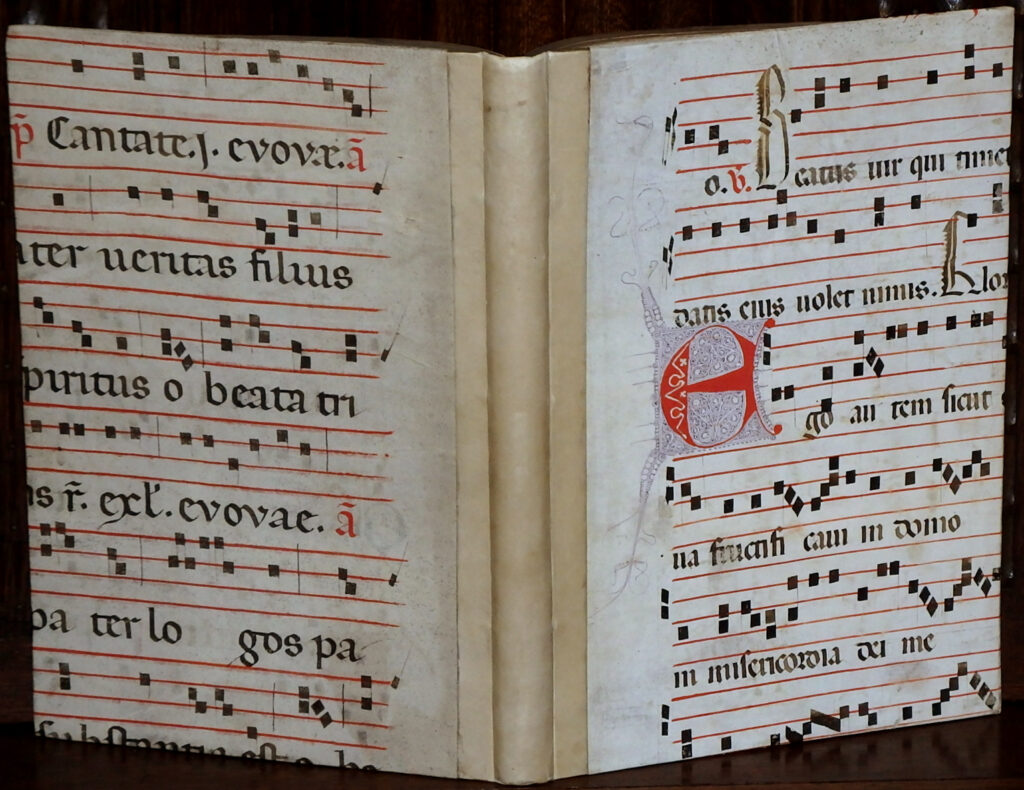 p̄ Cantate.j. evovæ. ā
ater ueritas filius
spiritus o beata tri
as r̄. exl̄. evovae. ā
pa ter lo gos pa
substantia est o be
o. v̄. Beatus uir qui timet
datis eius uolet nimis. Glor
Ego au tem sicut
ua fructifi caui in domo
in misericordia dei me